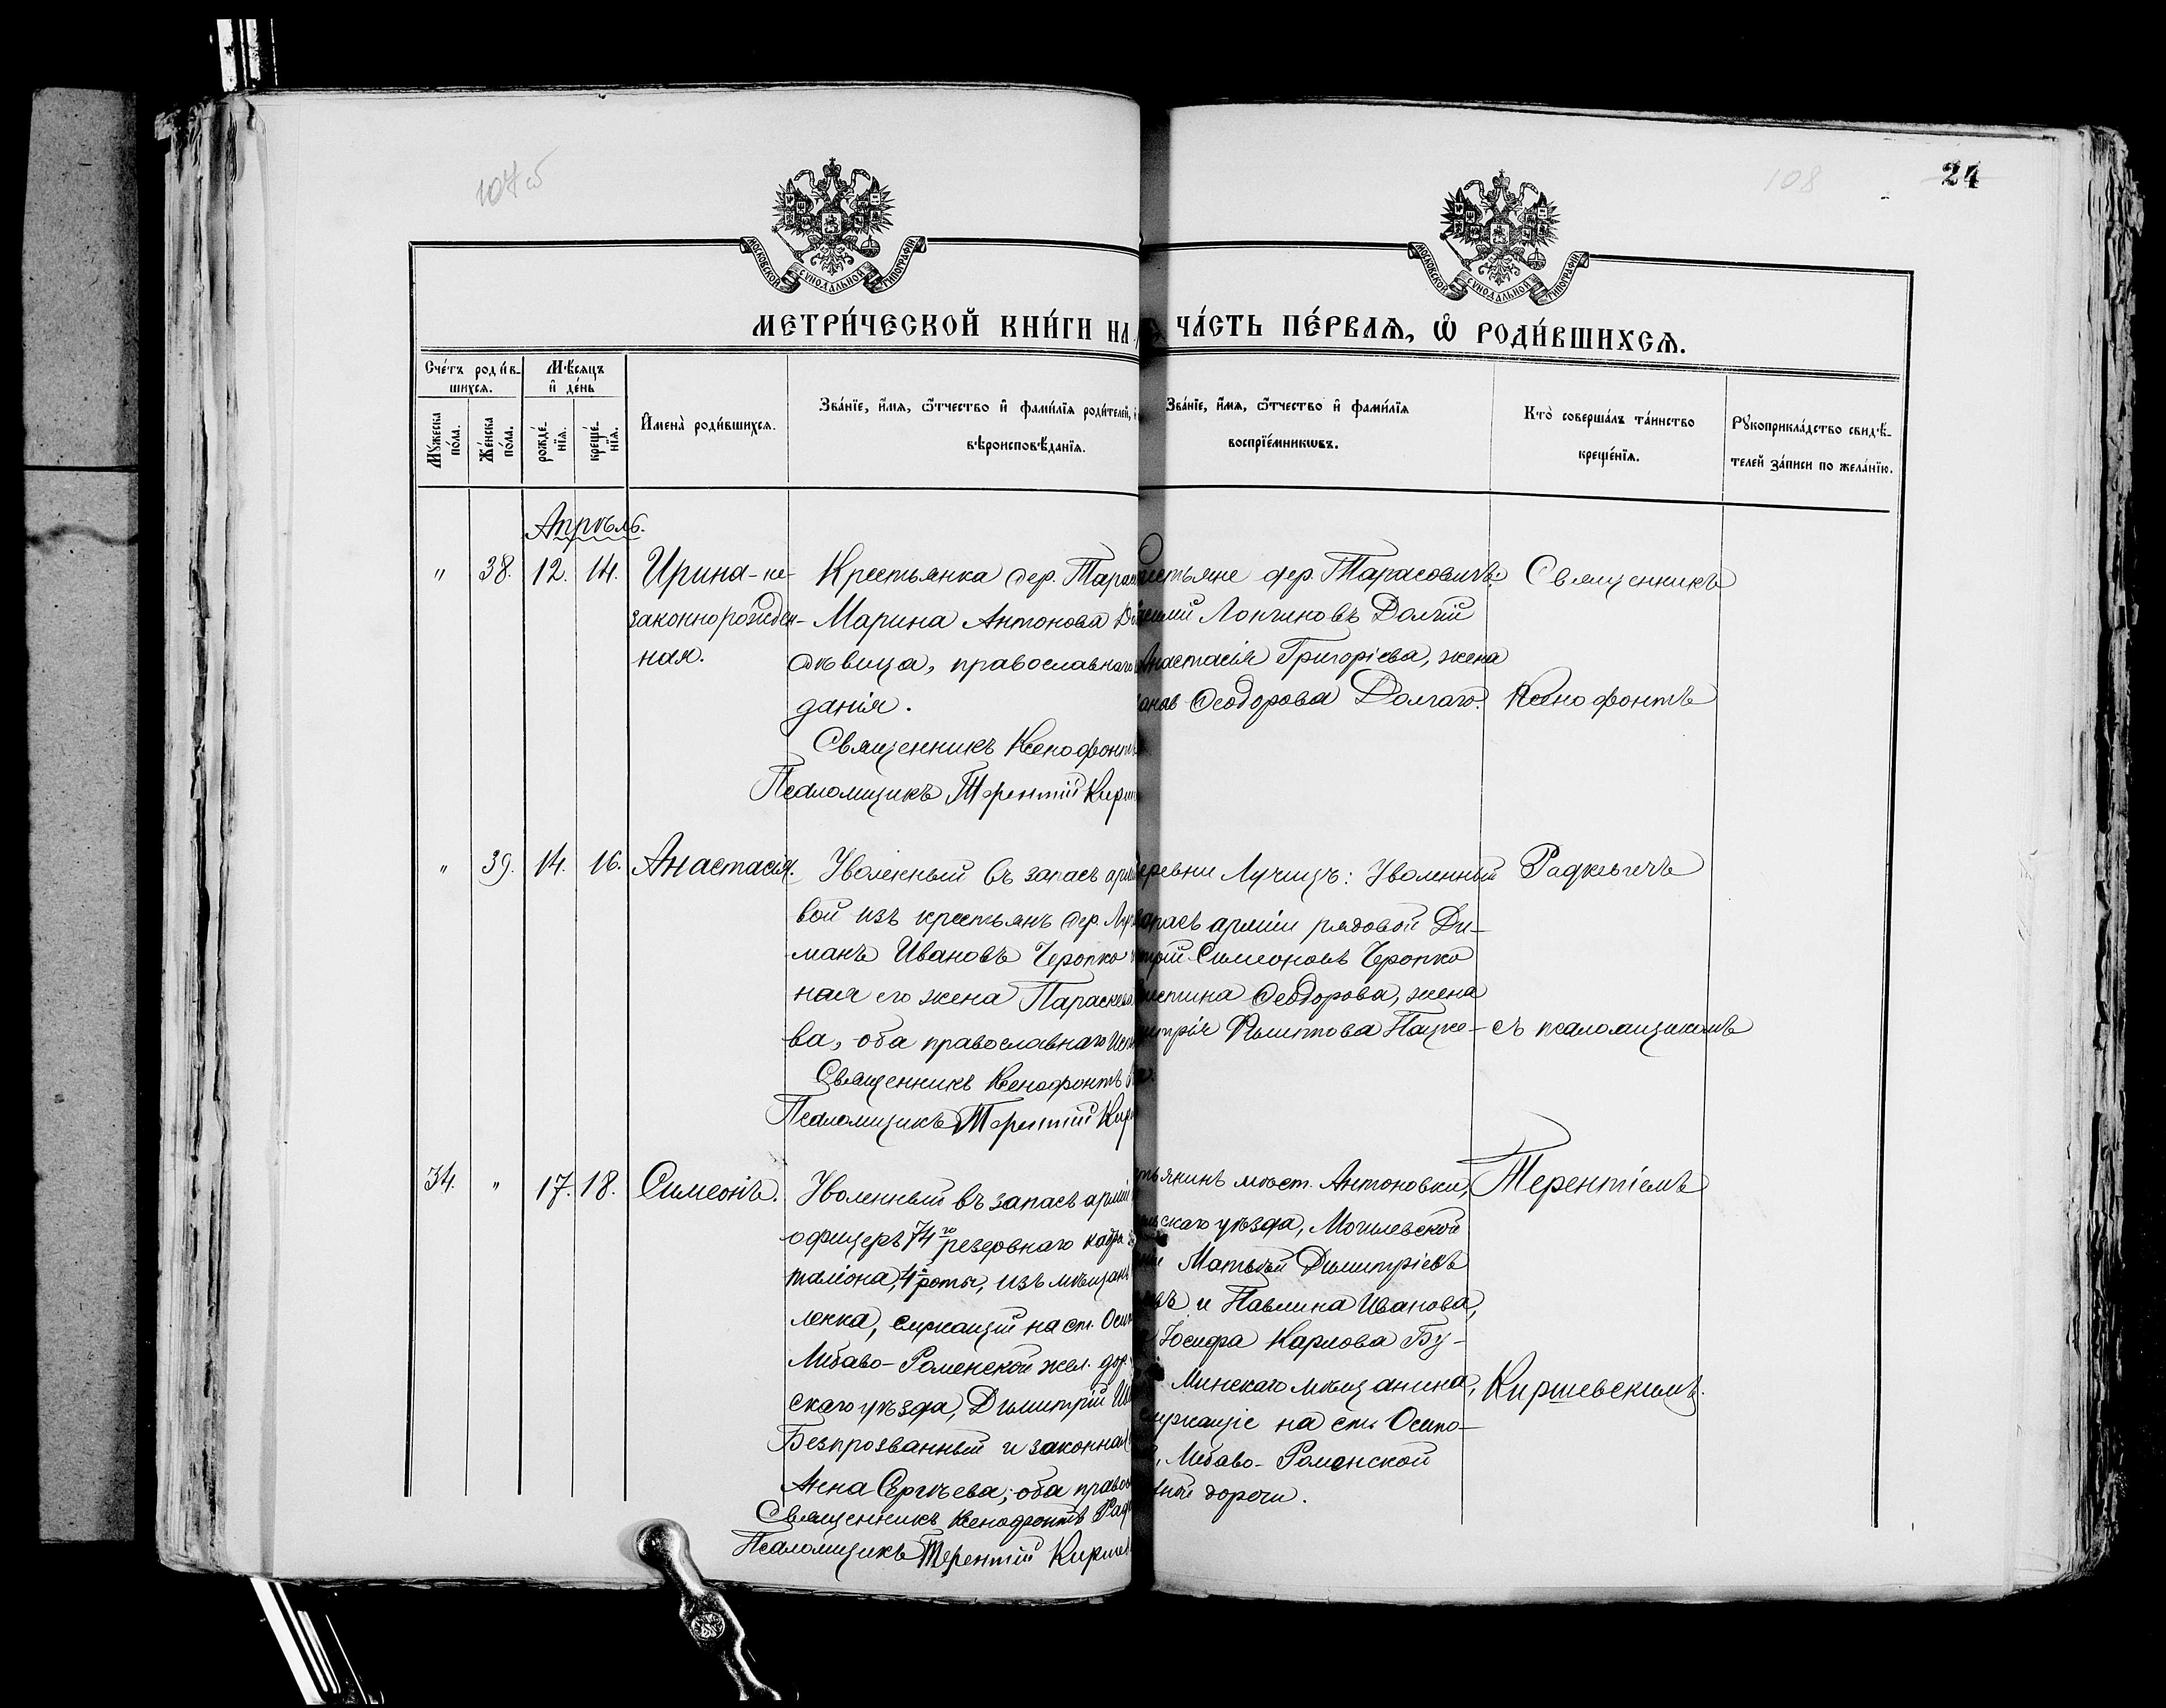 107 об
108
24
МОСКОВСКОЙ СУНОДАЛЬНОЙ ТИПОГРАФІИ
МОСКОВСКОЙ СУНОДАЛЬНОЙ ТИПОГРАФІИ
МЕТРИ́ЧЕСКОЙ КНИ́ГИ НА
ЧА́СТЬ ПЕ́РВАѦ, Ѿ РОДИ́ВШИХСѦ.
Сче́тъ роди́в-
шихсѧ.
Мѣ́сѧцъ
и҆ де́нь
Мꙋ́жеска по́ла.
Же́нска по́ла.
рожде́-нїѧ.
креще́-нїѧ.
И҆мена̀ роди́вшихсѧ.
Зва́нїе, и҆́мѧ, ѻ҆́тчество и҆ фами́лїѧ роди́телей,
вѣроисповѣ́данїѧ.
Зва́нїе, и҆́мѧ, ѻ҆́тчество и҆ фами́лїѧ
воспрїе́мникѡвъ.
Кто̀ соверша́лъ та́инство
креще́нїѧ.
Рꙋкоприкла́дство свидѣ́-
телей за́писи по жела́нїю.
Апрѣль.
" 38. 12. 14. Ирина-не-
законнорожден-
ная.
Крестьянка дер. Тарас
Марина Антонова
дѣвица, православнаго
данія.
Священникъ Ксенофонтъ
Псаломщикъ Терентій Кирш
стьяне дер. Тарасовичъ:
Лонгиновъ Долгій
Анастасія Григоріева, жена
Ѳеодорова Долгаго.
Священникъ
Ксенофонтъ
" 39. 14. 16. Анастасія.
Уволенный въ запасъ арміи
вой изъ крестьянъ дер. Луч
манъ Ивановъ Черопко
ная его жена Параскева
ва, оба православнаго
Священникъ Ксенофонтъ
Псаломщикъ Терентій Кир
еревни Лучицъ: Уволенный
запасъ арміи рядовой Ди-
митрій Симеоновъ Черопко
Ѳеодорова, жена
Филиппова
Радкевичъ
съ псаломщикомъ
34. " 17. 18. Симеонъ.
Уволенный въ запасъ арміи
офицеръ 74го резервнаго кадр
таліона, 4й роты, изъ мѣщанъ
ленка, служащій на ст. Осип
Либаво-Роменской жел. дор.
скаго уѣзда, Димитрій
Безпрозванный и законная
Анна Сергѣева; оба право
Священникъ Ксенофонтъ Рад
Псаломщикъ Терентій Киршев
стьянинъ мѣст. Антоновки,
скаго уѣзда, Могилевской
Матѳѣй Димитріевъ
и Павлина Иванова,
Іосифа Карлова Бу-
Минскаго мѣщанина,
служащіе на ст. Осипо-
Либаво-Роменской
дороги.
Терентіемъ
Киршевскимъ.